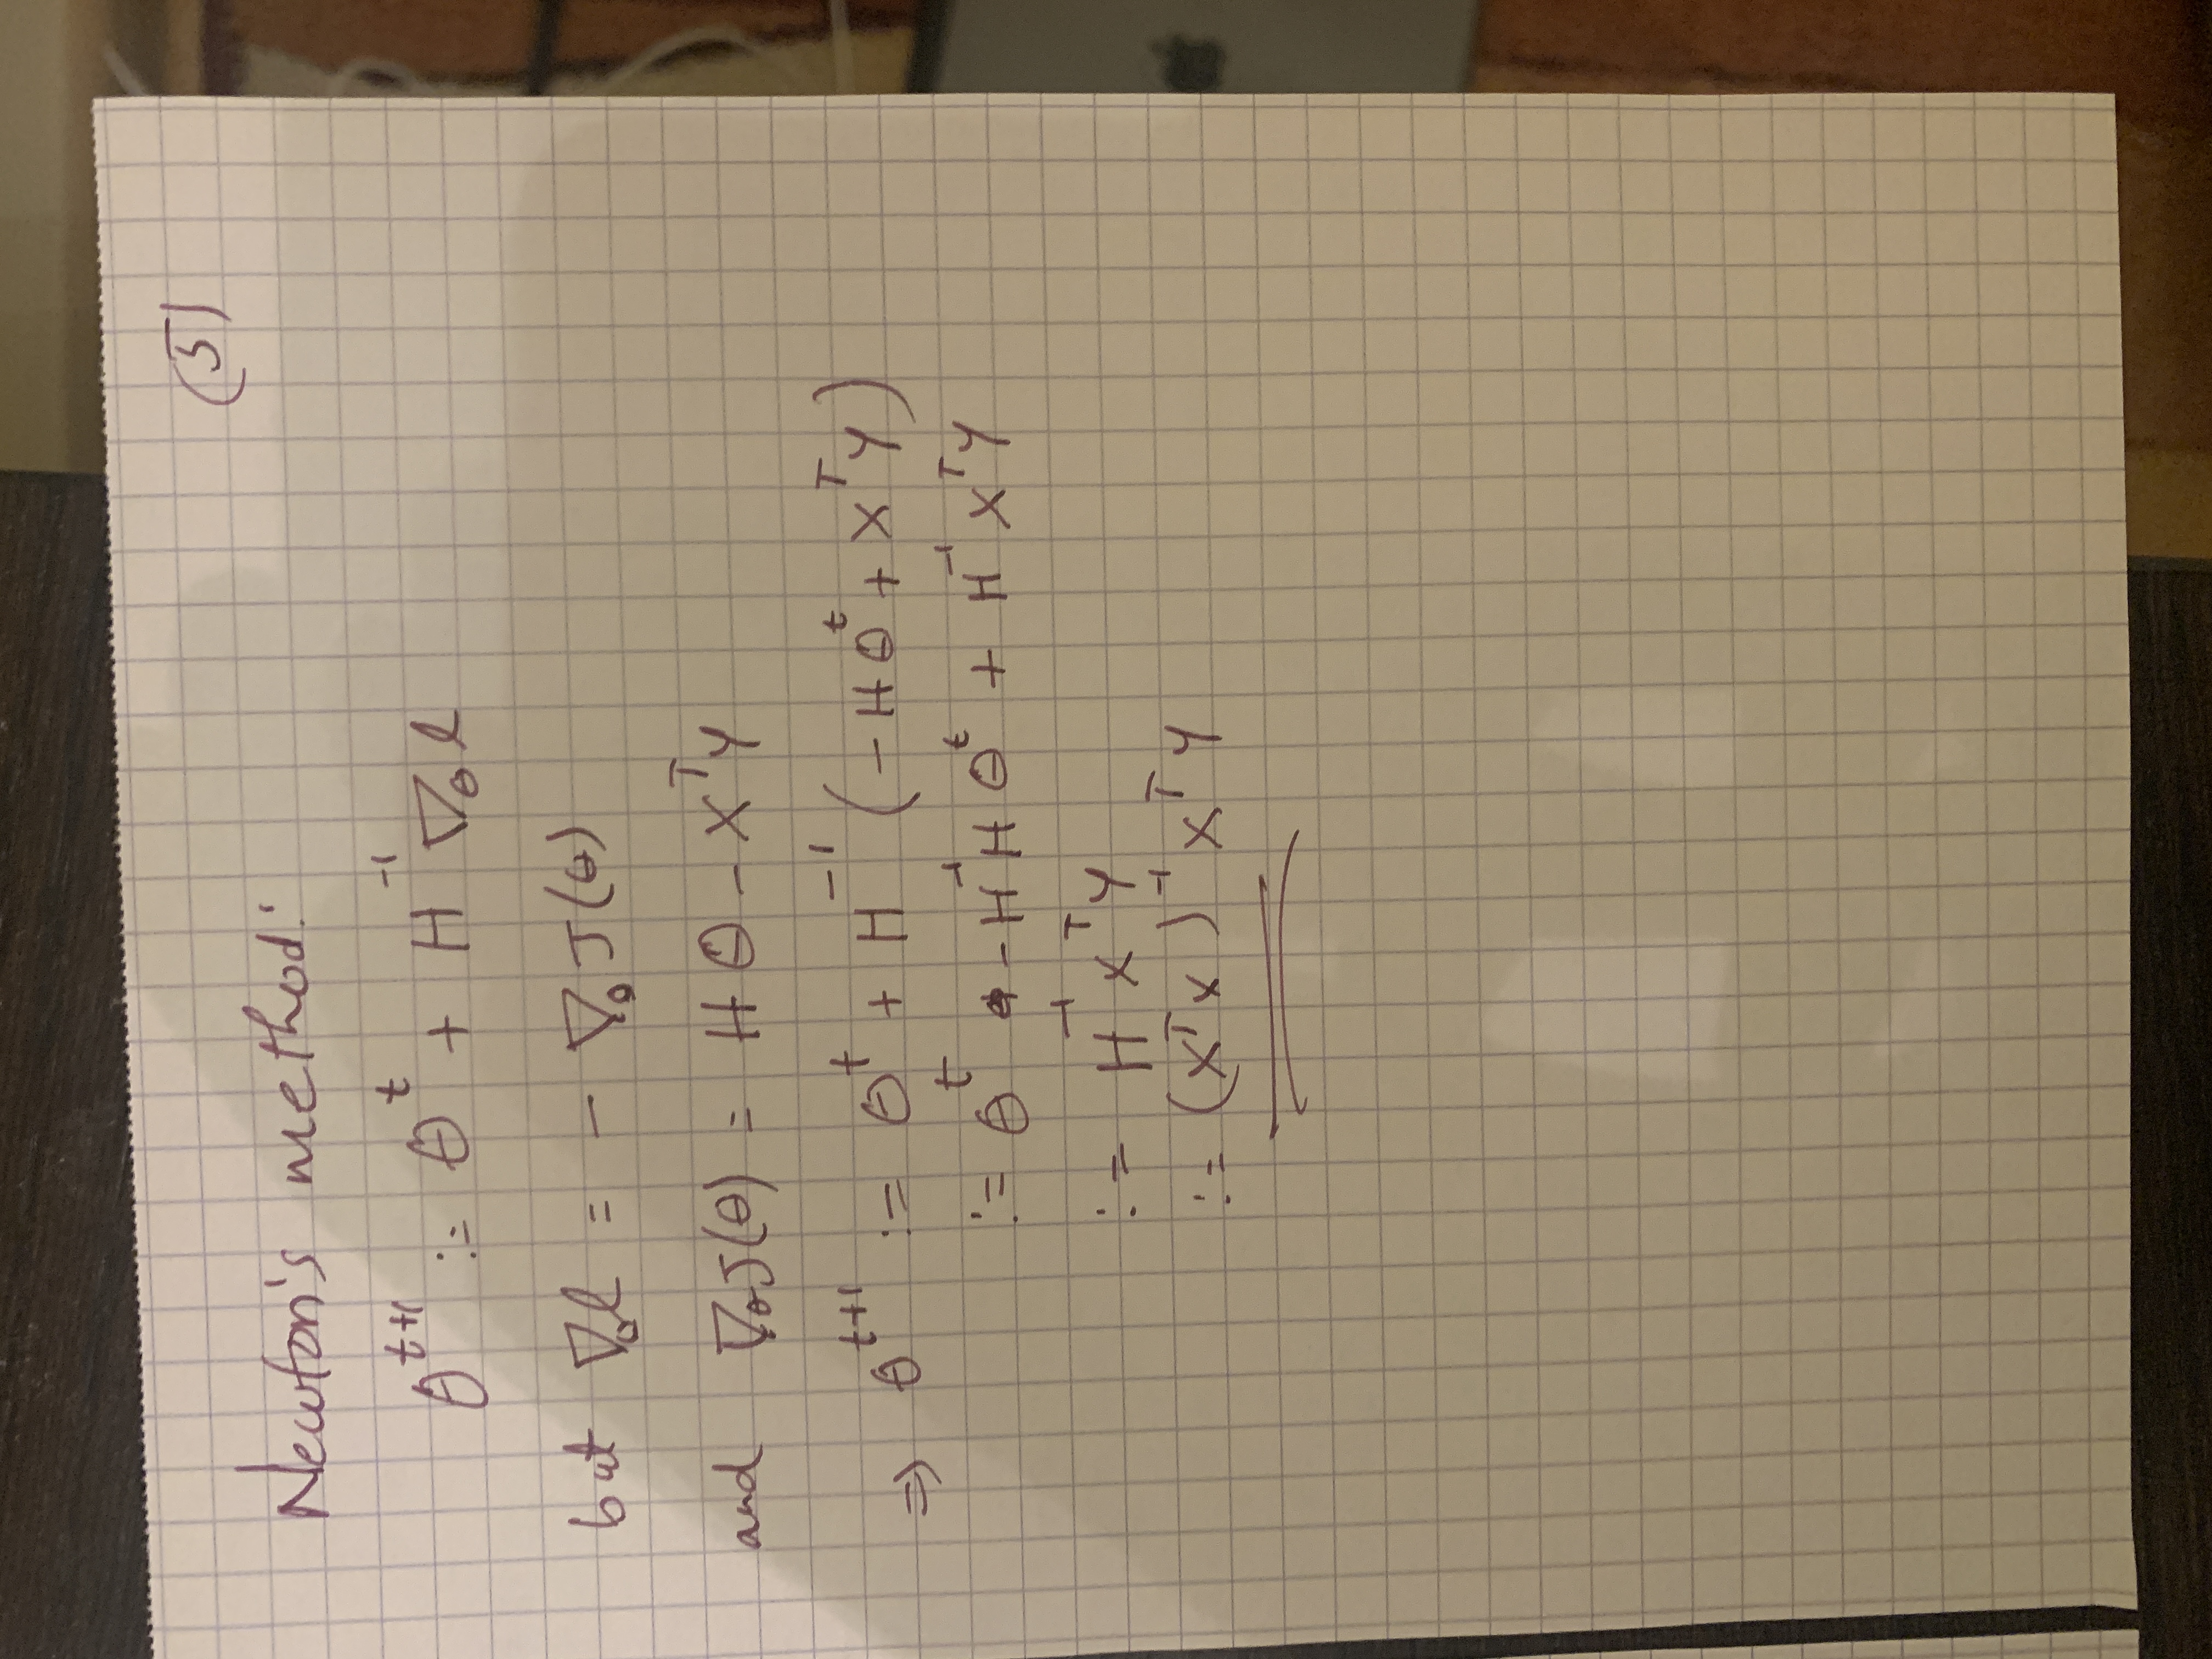 (5)
Newton's method:
θ^{t+1} := θ^t + H^{-1} ∇_θ ℓ
but ∇_θ ℓ = - ∇_θ J(θ)
and ∇_θ J(θ) = H θ - X^T Y
⇒ θ^{t+1} := θ^t + H^{-1} (- H θ^t + X^T Y)
:= θ^t - H^{-1} H θ^t + H^{-1} X^T Y
:= H^{-1} X^T Y
:= (X^T X)^{-1} X^T Y